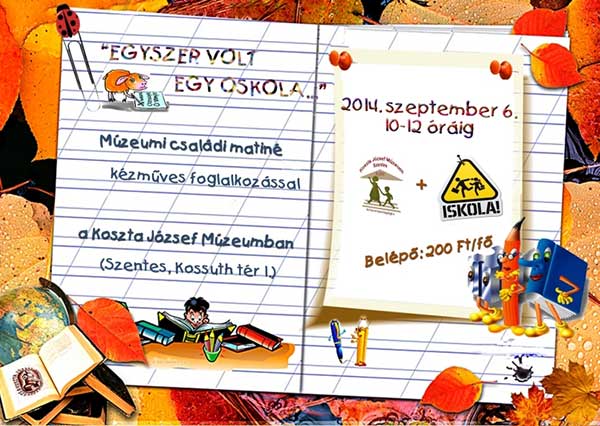 "EGYSZER VOLT
EGY OSKOLA..."
Múzeumi családi matiné
kézműves foglalkozással
a Koszta József Múzeumban
(Szentes, Kossuth tér 1.)
2014. szeptember 6.
10-12 óráig
Koszta József Múzeum
Szentes
+
ISKOLA!
Belépő: 200 Ft/fő